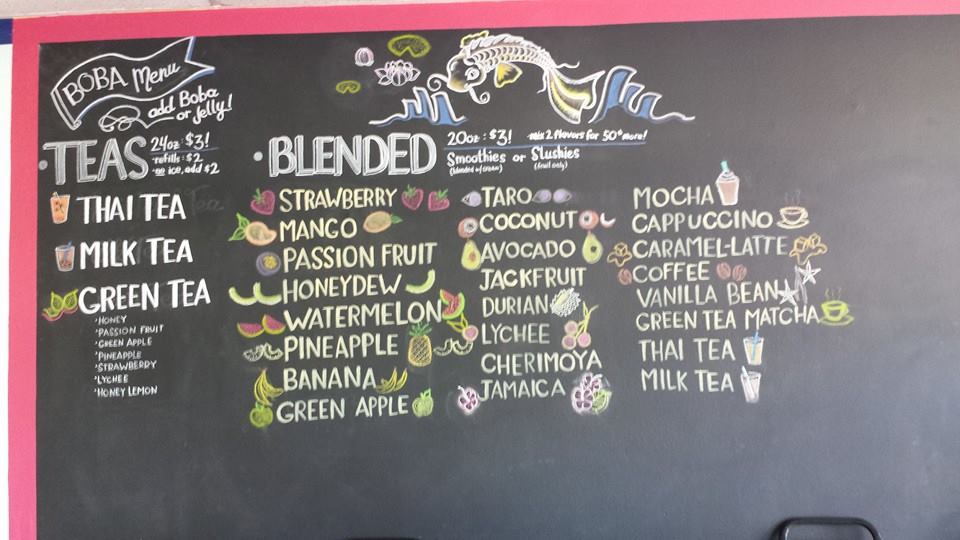 BOBA Menu
add Boba
or Jelly!
TEAS
24oz: $3!
·refills: $2
·no ice, add $2
THAI TEA
MILK TEA
GREEN TEA
·HONEY
·PASSION FRUIT
·GREEN APPLE
·PINEAPPLE
·STRAWBERRY
·LYCHEE
·HONEY LEMON
·BLENDED
20oz: $3! ·mix 2 flavors for 50¢ more!
Smoothies or Slushies
(blended w/cream) (fruit only)
STRAWBERRY
MANGO
PASSION FRUIT
HONEYDEW
WATERMELON
PINEAPPLE
BANANA
GREEN APPLE
TARO
COCONUT
AVOCADO
JACKFRUIT
DURIAN
LYCHEE
CHERIMOYA
JAMAICA
MOCHA
CAPPUCCINO
CARAMEL-LATTE
COFFEE
VANILLA BEAN
GREEN TEA MATCHA
THAI TEA
MILK TEA